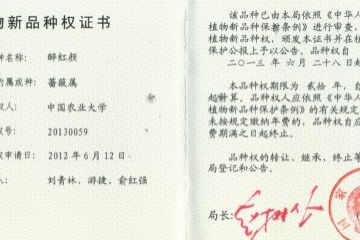 物新品种权证书
种名称：醉红颜
所属的属或种：蔷薇属
权人：中国农业大学
权号：20130059
权申请日：2012 年 6 月 12 日
人：刘青林、游捷、俞红强
该品种已由本局依照《中华人
植物新品种保护条例》进行审查，
植物新品种权，颁发本证书并在植
保护公报上予以公告。品种权自
二〇一三年 六月 二十八日起
本品种权期限为 贰拾 年，自
起算。品种权人应依照《中华人
植物新品种保护条例》的规定缴
未按规定缴纳年费的，品种权自应
费期满之日起终止。
品种权的转让、继承、终止等
局登记和公告。
局长：